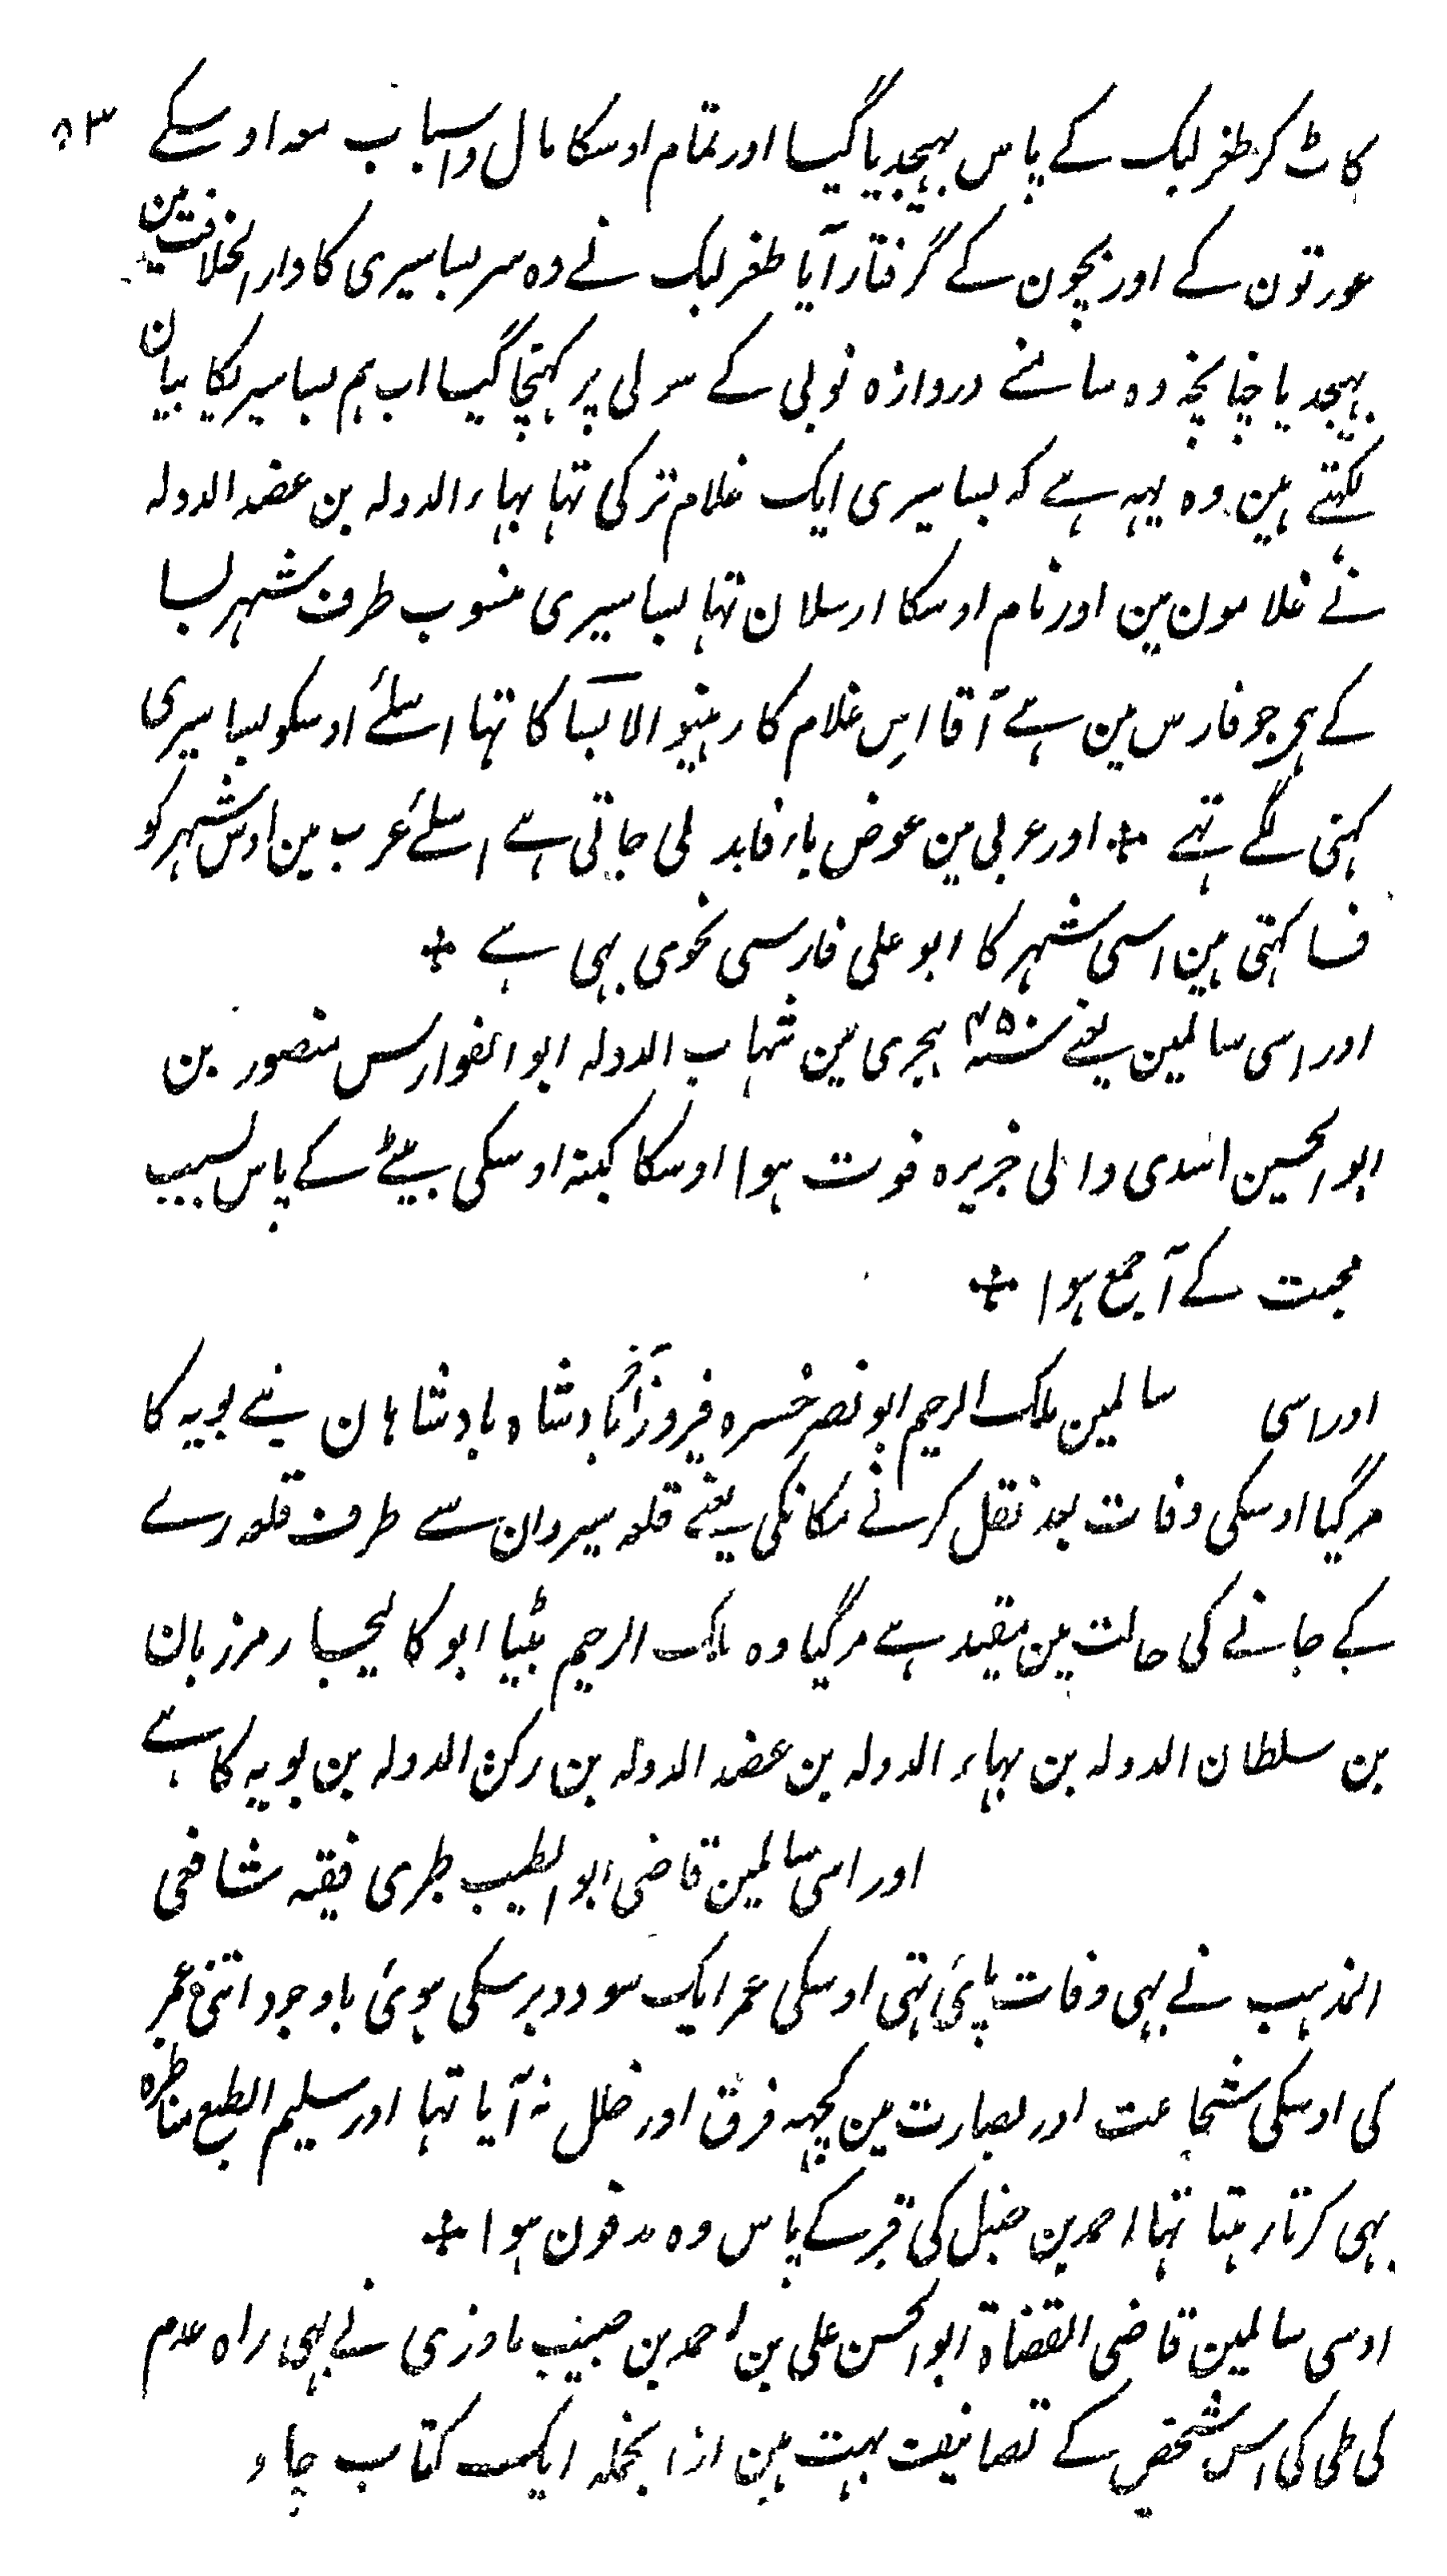 ۸۳
کاٹ کر طغرلبک کے پاس بہیجدیا گیا اور تمام اوسکا مال واسباب معہ اوسکے
عورتون کے اور بچون کے گرفتار آیا طغرلبک نے وہ سر بساسیری کا دارالخلافت مین
بہیجدیا چنانچہ وہ سامنے دروازہ نوبی کے سولی پر کہنچا گیا اب ہم بساسیریکا بیان
لکہتے ہین وہ یہہ ہے کہ بساسیری ایک غلام ترکی تہا بہاء الدولہ بن عضد الدولہ
نے غلامون مین اور نام اوسکا ارسلان تہا بساسیری منسوب طرف شہر بسا
کے ہی جو فارس مین ہے آقا اس غلام کا رہنیوالا بسا کا تہا اسلئے اوسکو بساسیری
کہنی لگے تہے ÷ اور عربی مین عوض باء فا بدلی جاتی ہے اسلئے عرب مین اوس شہر کو
فسا کہتی ہین اسی شہر کا ابو علی فارسی نحوی بہی ہے ÷
اور اسی سالمین یعنے سنہ ۴۵۰ ہجری مین شہاب الدولہ ابو الفوارس منصور بن
ابو الحسین اسدی والی جزیرہ فوت ہوا اوسکا کینہ اوسکی بیٹے کے پاس بسبب
محبت کے آ جمع ہوا ÷
اور اسی سالمین ملک الرحیم ابو نصر خسرہ فیروز آخر بادشاہ بادشاہان بنے بویہ کا
مر گیا اوسکی وفات بعد نقل کرنے مکانکی یعنے قلعہ سیروان سے طرف قلعہ رے
کے جانے کی حالت مین مقید ہے مر گیا وہ ملک الرحیم بیٹا ابو کالیجار مرزبان
بن سلطان الدولہ بن بہاء الدولہ بن عضد الدولہ بن رکن الدولہ بن بویہ کا ہے
اور اسی سالمین قاضی ابو الطیب طبری فقیہ شافعی
المذہب نے بہی وفات پائی تہی اوسکی عمر ایک سو دو برسکی ہوئی باوجود اتنی عمر
کی اوسکی شجاعت اور بصارت مین کچہہ فرق اور خلل نہ آیا تہا اور سلیم الطبع مناظرہ
بہی کرتا رہتا تہا احمد بن حنبل کی قبر کے پاس وہ مدفون ہوا ÷
اوسی سالمین قاضی القضاۃ ابو الحسن علی بن احمد بن حبیب ماوردی نے بہی راہ عدم
کی طی کی اس شخص کے تصانیف بہت ہین ازانجملہ ایک کتاب حاو